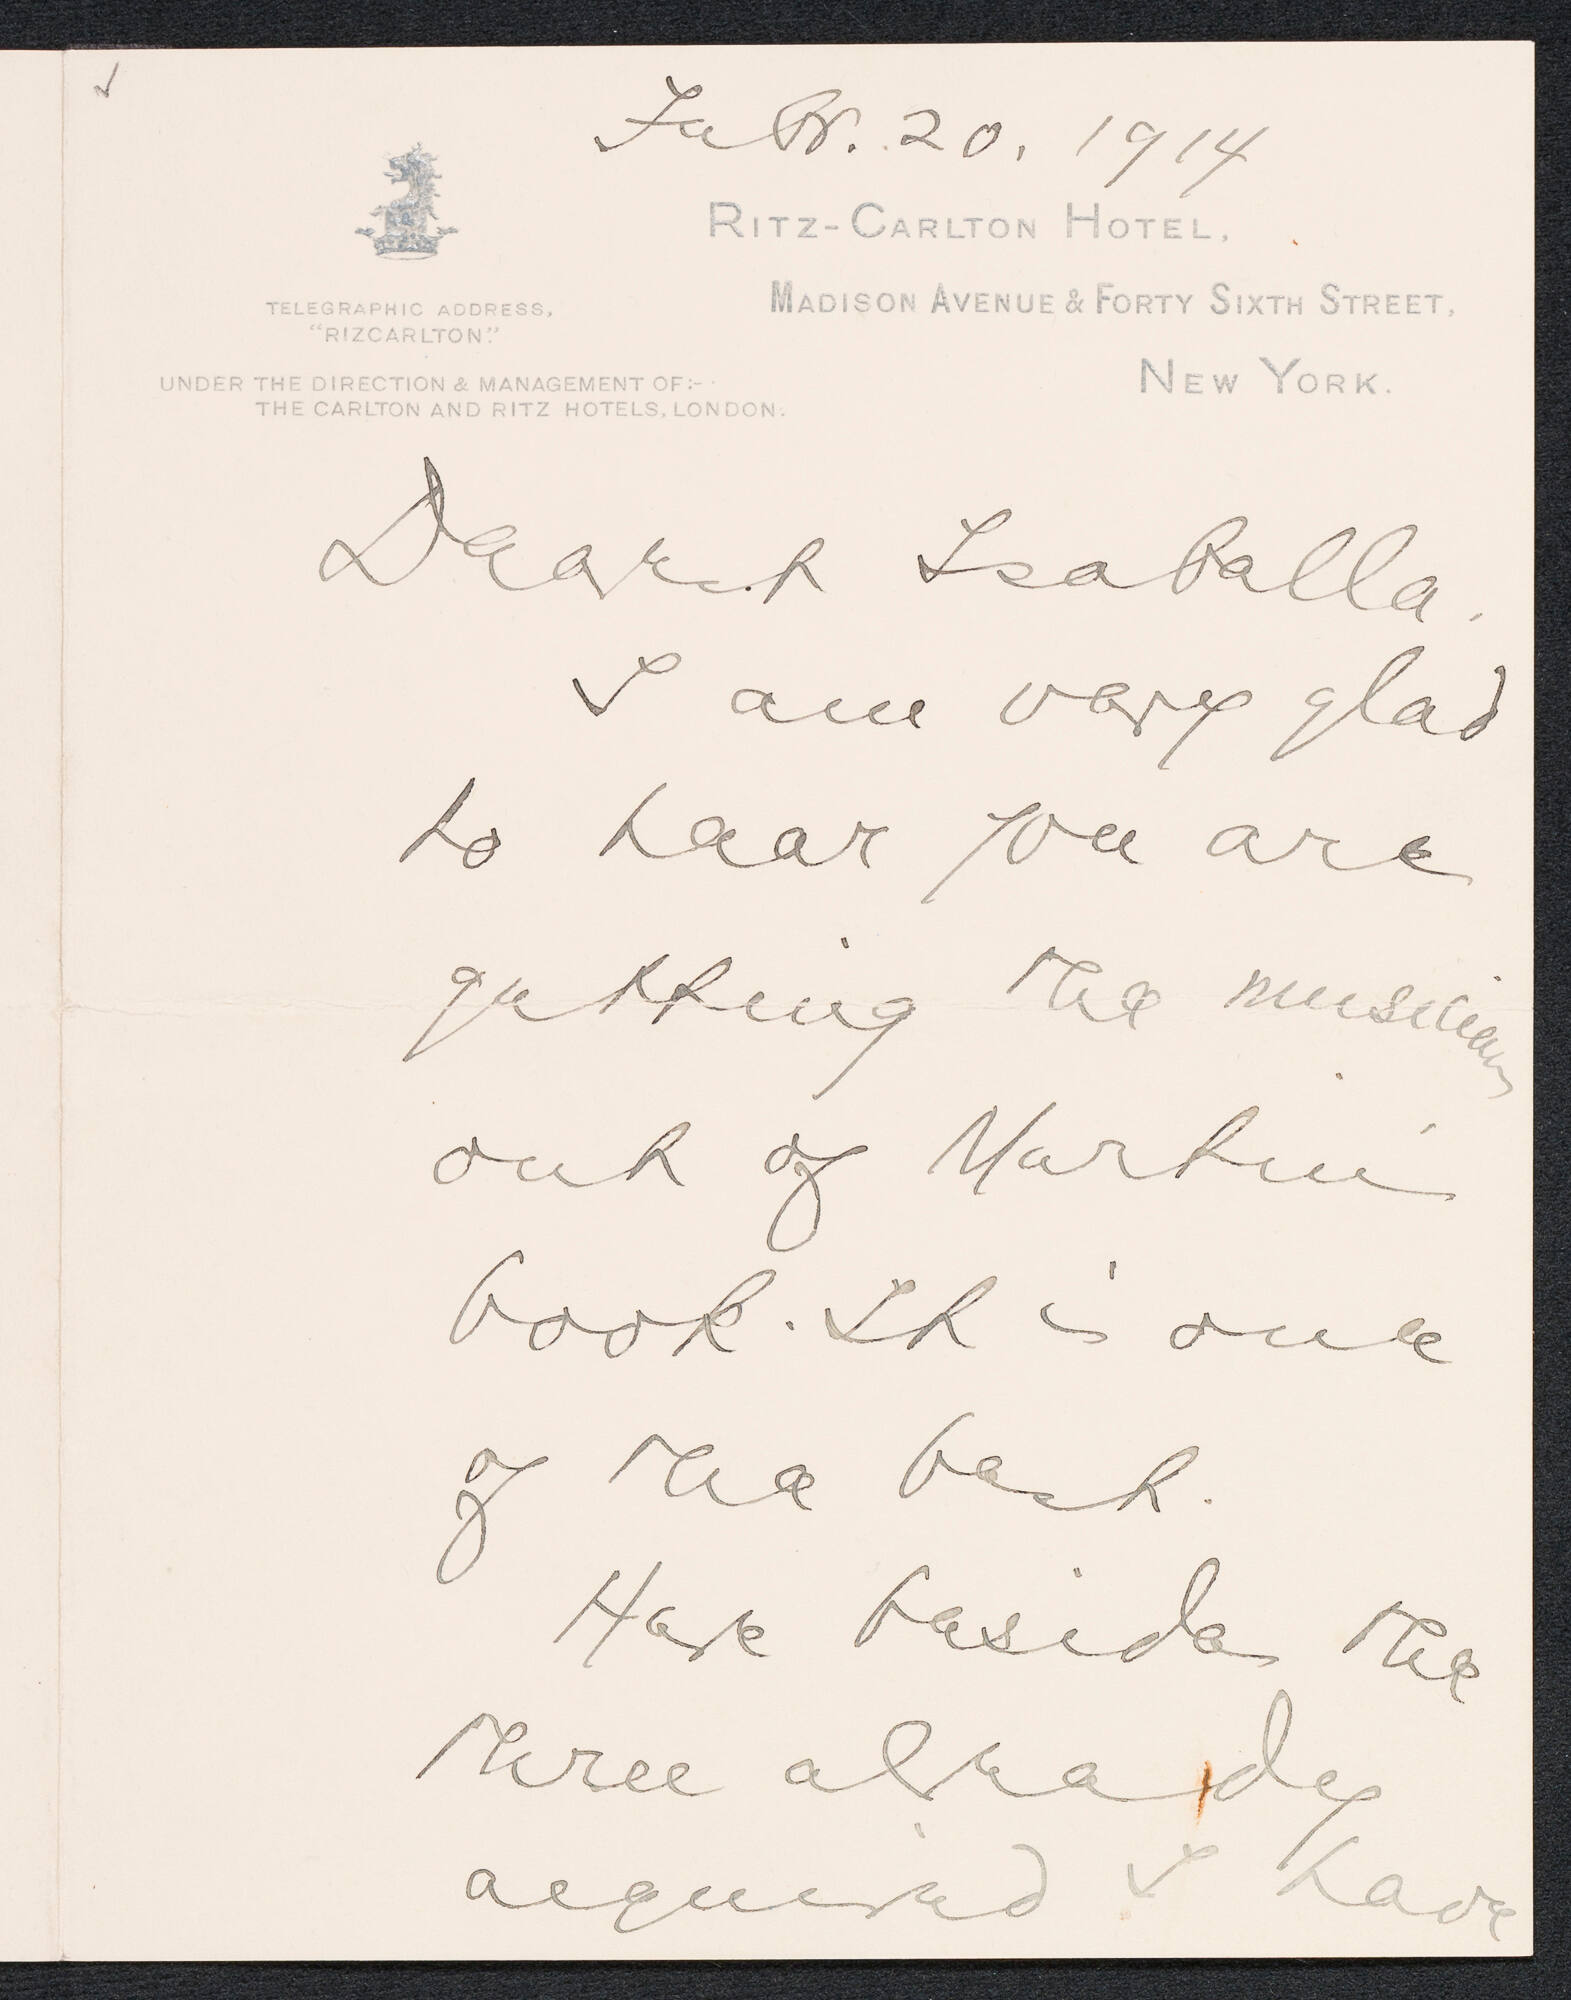 Febr. 20, 1914
RITZ-CARLTON HOTEL,
MADISON AVENUE & FORTY SIXTH STREET,
NEW YORK.
TELEGRAPHIC ADDRESS,
"RIZCARLTON."
UNDER THE DIRECTION & MANAGEMENT OF:-
THE CARLTON AND RITZ HOTELS, LONDON.
Dearest Isabella,
I am very glad
to hear you are
getting the musicians
out of Martin's
book. It is one
of the best.
Have beside the
three already
acquired I have